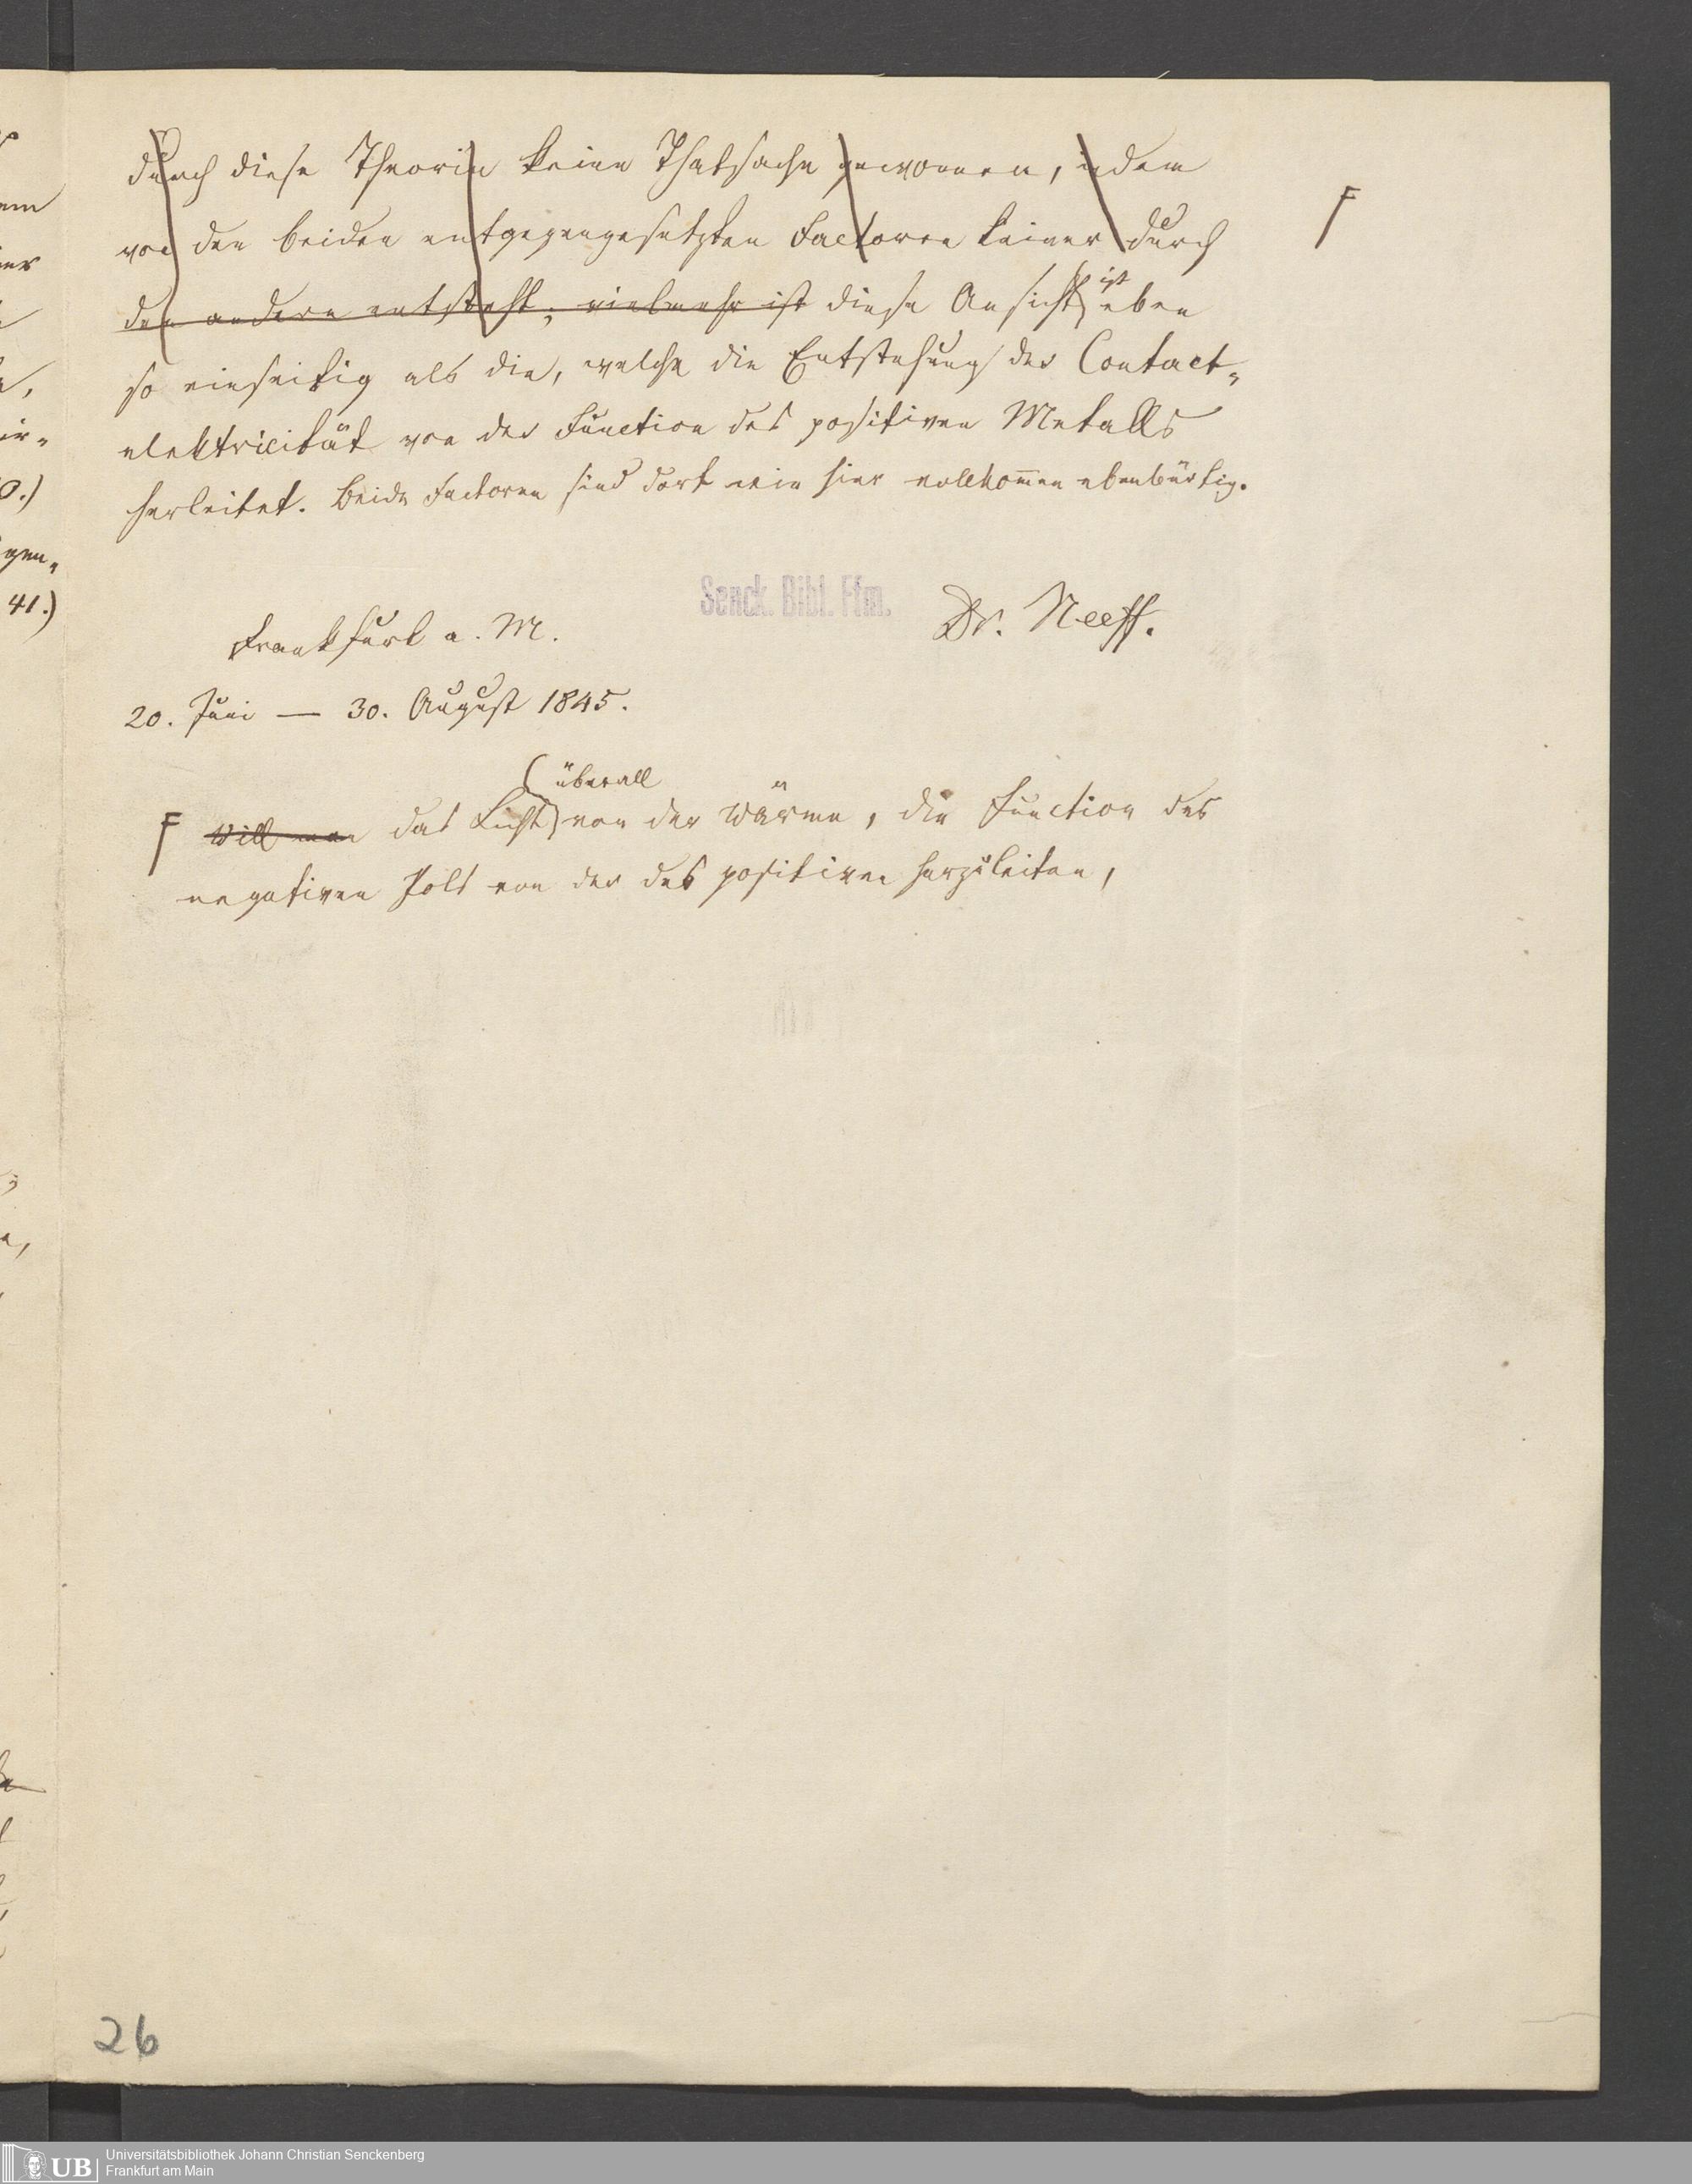 durch diese Theorie keine Thatsache gewonnen, indem
von den beiden entgegengesetzten Factoren keiner durch
den andern entsteht; vielmehr ist diese Ansicht ist eben
so einseitig als die, welche die Entstehung der Contact-
elektricität von der Function des positiven Metalls
herleitet. Beide Factoren sind dort wie hier vollkom̅en ebenbürtig.
Senck. Bibl. Ffm.
Dr. Neeff.
Frankfurt a. M.
20. Juni — 30. August 1845.
überall
F Will man das Licht von der Wärme, die Function des
negativen Pols von der des positiven herzuleiten,
F
26
UB Universitätsbibliothek Johann Christian Senckenberg
Frankfurt am Main